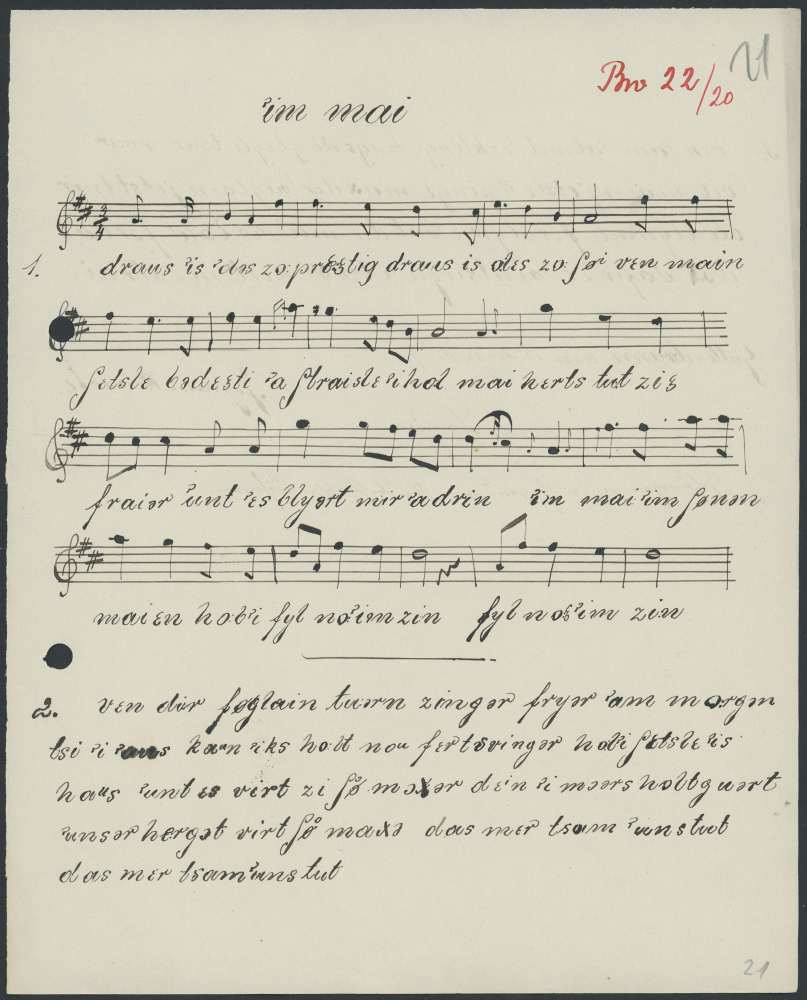 Bro 22/20
21
'im mai
3/4
1. draus 'is 'ales zo: prɛxtig draus is ales zo: ʃø: ven main
ʃetsle bədeʃti 'a ʃtraisle 'i hol mai herts tut ziç
fraiər 'unt 'es blyərt mir 'a drin 'im mai 'im ʃønən
maiɛn hob'i fyl no'im zin fyl no 'im zin
2. vɛn diər føglain tuərn zingər fryər 'am morgən
tsi 'i 'aus kan 'iks holt nou fertsvingər hob'i ʃetsle 'is
haus 'unt es virt zi ʃø maxər den 'i məərs holt guərt
'unsər hergot virt ʃø maxə das mer tsam 'uns tut
das mer tsam 'uns tut
21